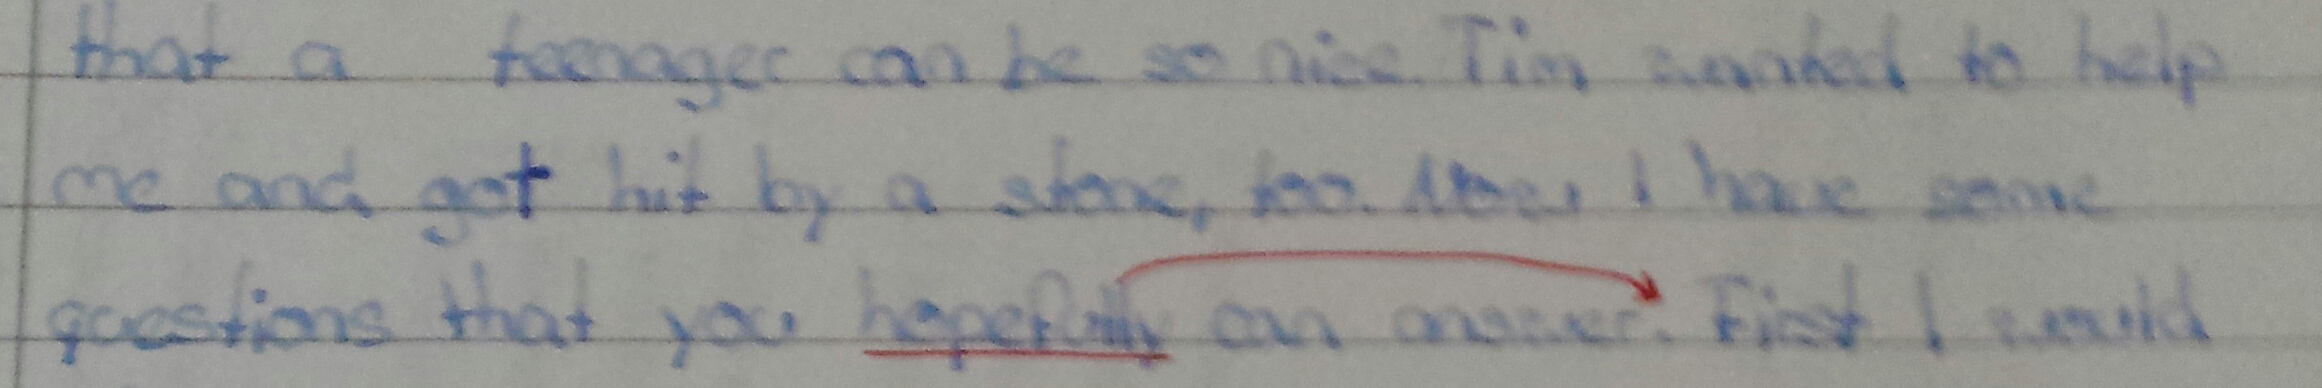 that a teenager can be so nice. Tim wanted to help
me and got hit by a stone, too. I have some
questions that you hopefully can answer. First I would